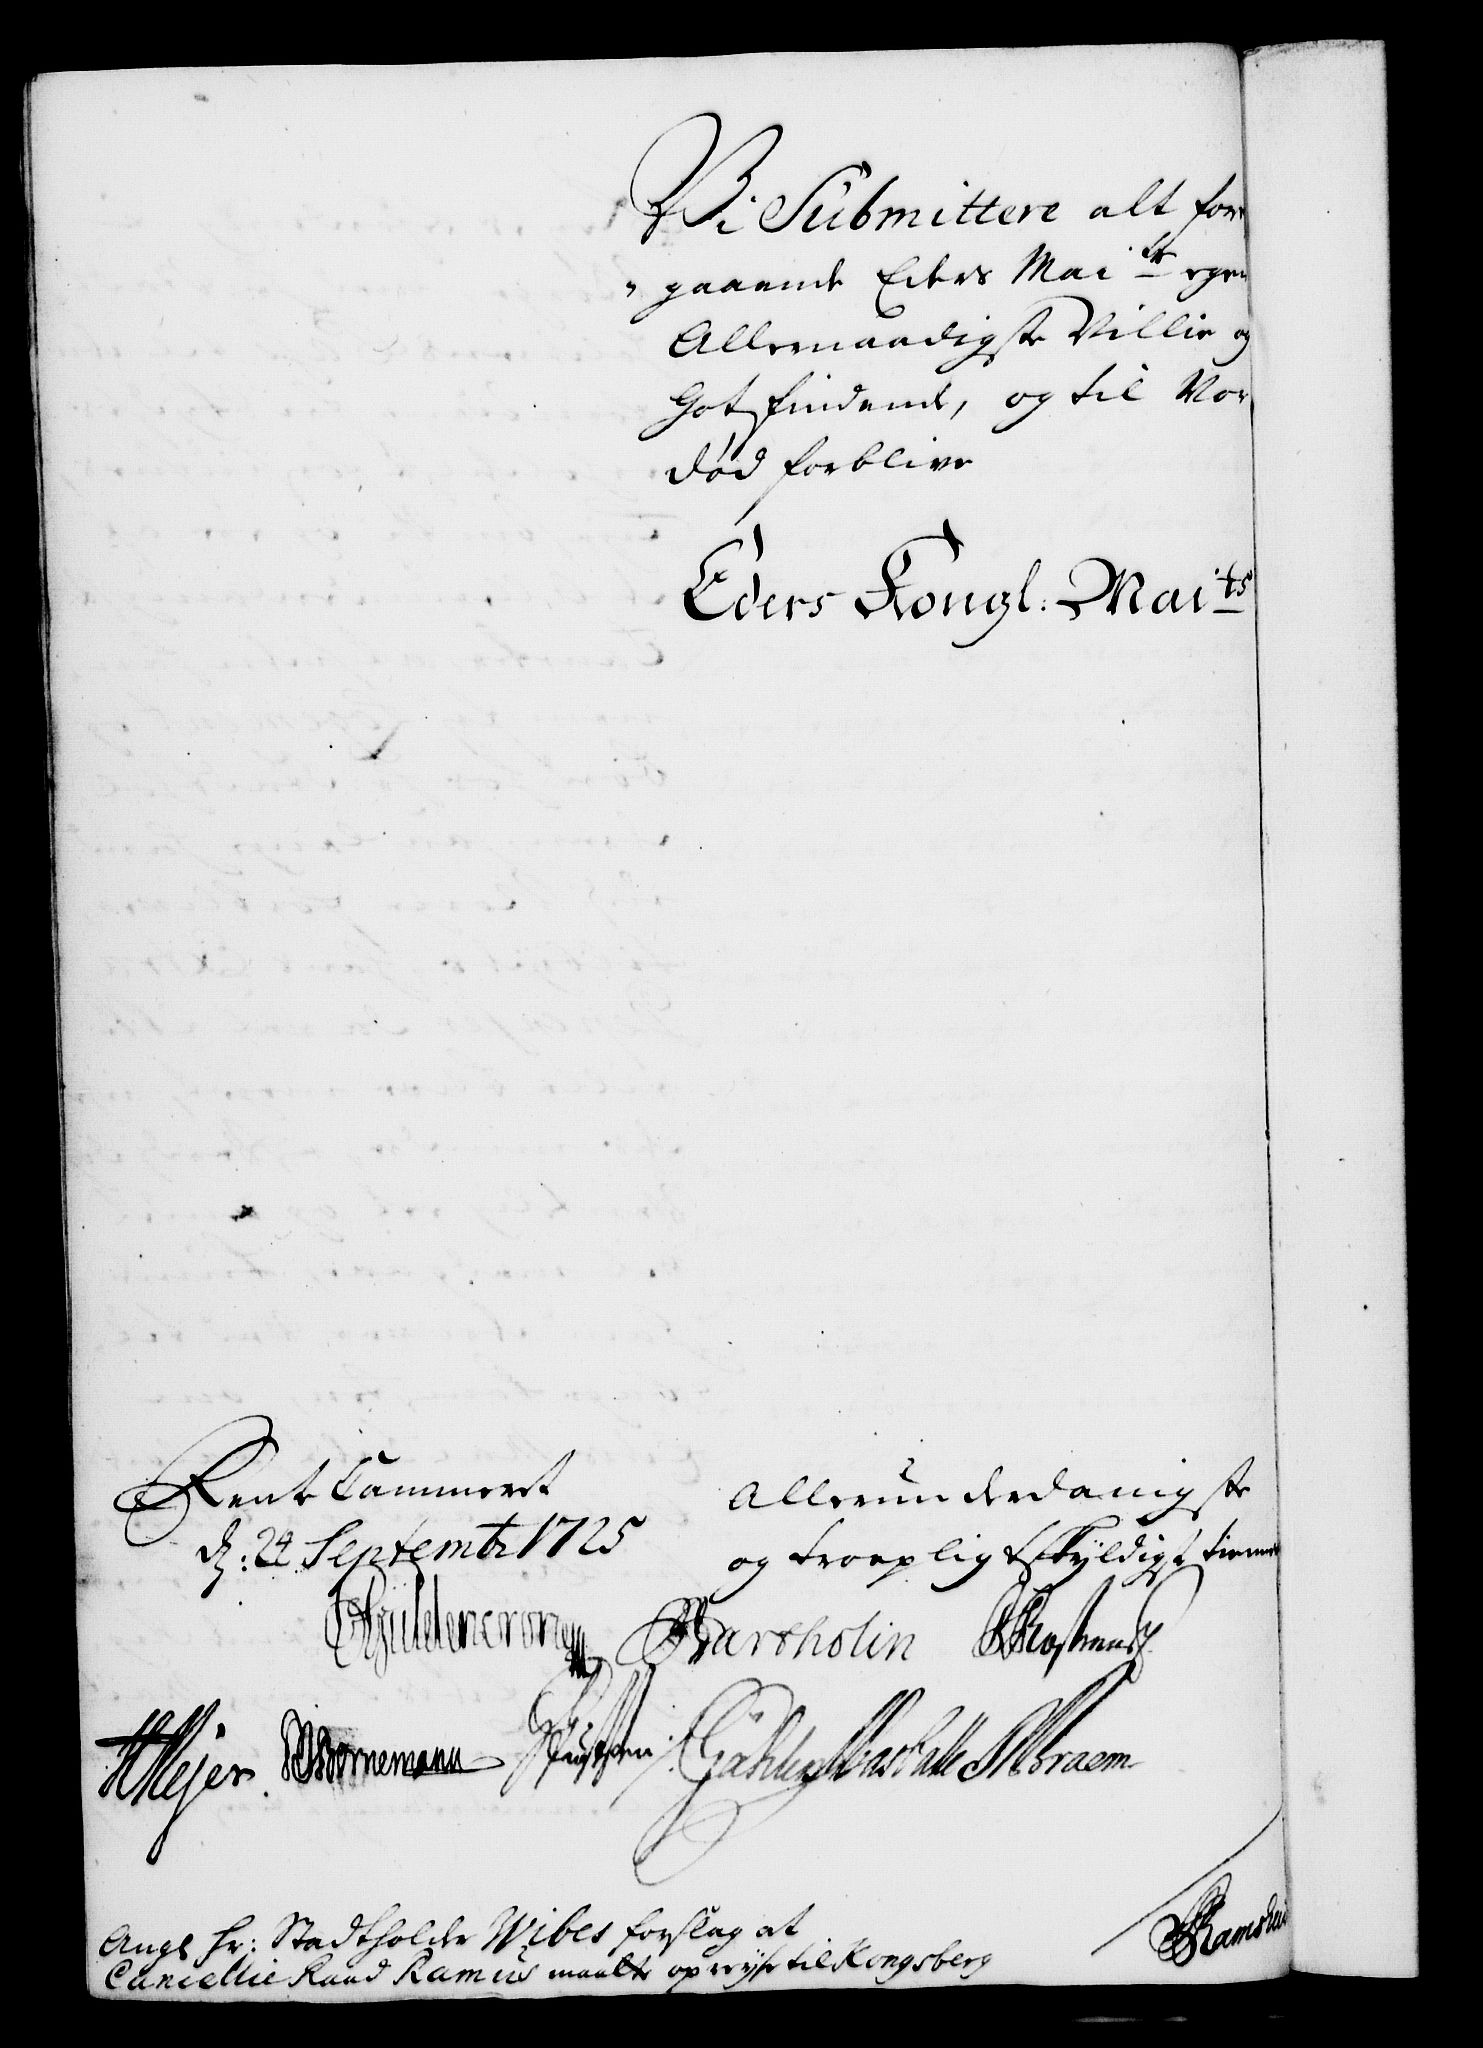 Vi Submittere alt for
„ gaaende Eders Mai<sup>ts</sup> egen
Allernaadigste Villie og
Gotfindende, og til Vor
død forblive
Eders Kongl: Mai<sup>ts</sup>
Rente Cammeret
d: 24 Septembr 1725
Allerunderdanigste
og troepligtskyldigst tienere
Güldencrone
Bartholin
HMejer.
Bornemann
JMBraem
Ang<sup>de</sup> Hr: Stadtholder Wibes forslag at
Cancellie Raad Ramus maatte opreyse til Kongsberg